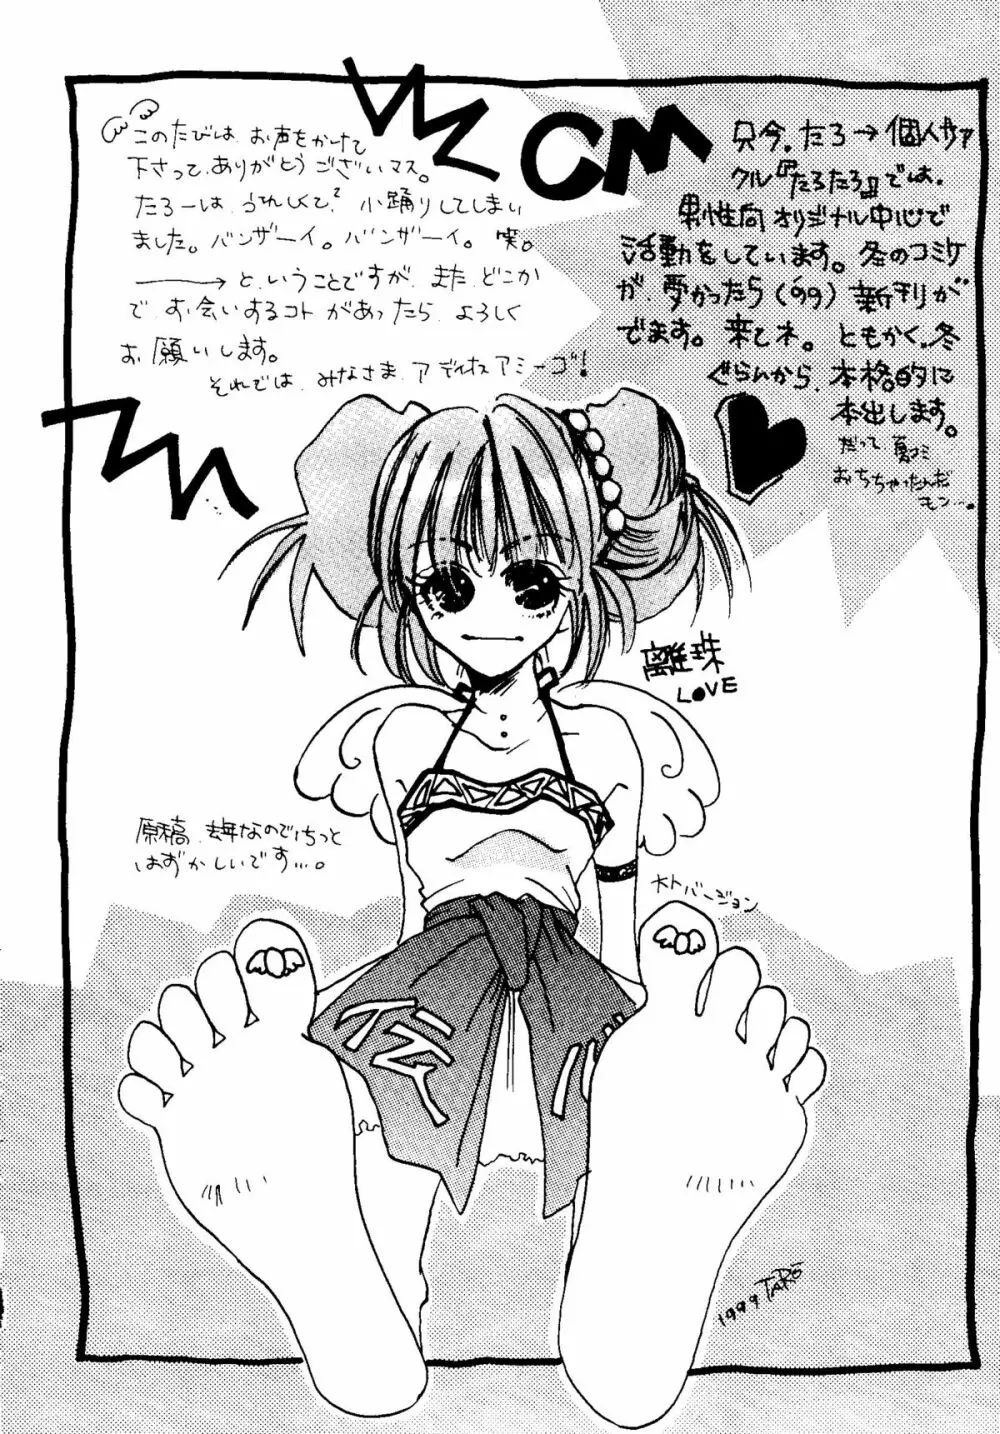 このたびは、お声をかけて
下さって、ありがとうございマス。
たろーは、うれしくて、小踊りしてしまい
ました。バンザーイ。バンザーイ。笑。
→と、いうことですが、また、どこか
で、お会いするコトがあったら、よろしく
お願いします。
それでは、みなさま、アディオスアミーゴ!
CM
只今、たろ→個人サァ
クル『たろたろ』では、
男性向オリジナル中心で
活動をしています。冬のコミケ
が、受かったら(99)新刊が
でます。来てネ。ともかく、冬
ぐらいから、本格的に
本出します。
だって夏コミ
おちちゃったんだ
モン…。
離珠
LOVE
原稿、去年なのでちっと
はずかしいです…。
大トバージョン
1999 TARO